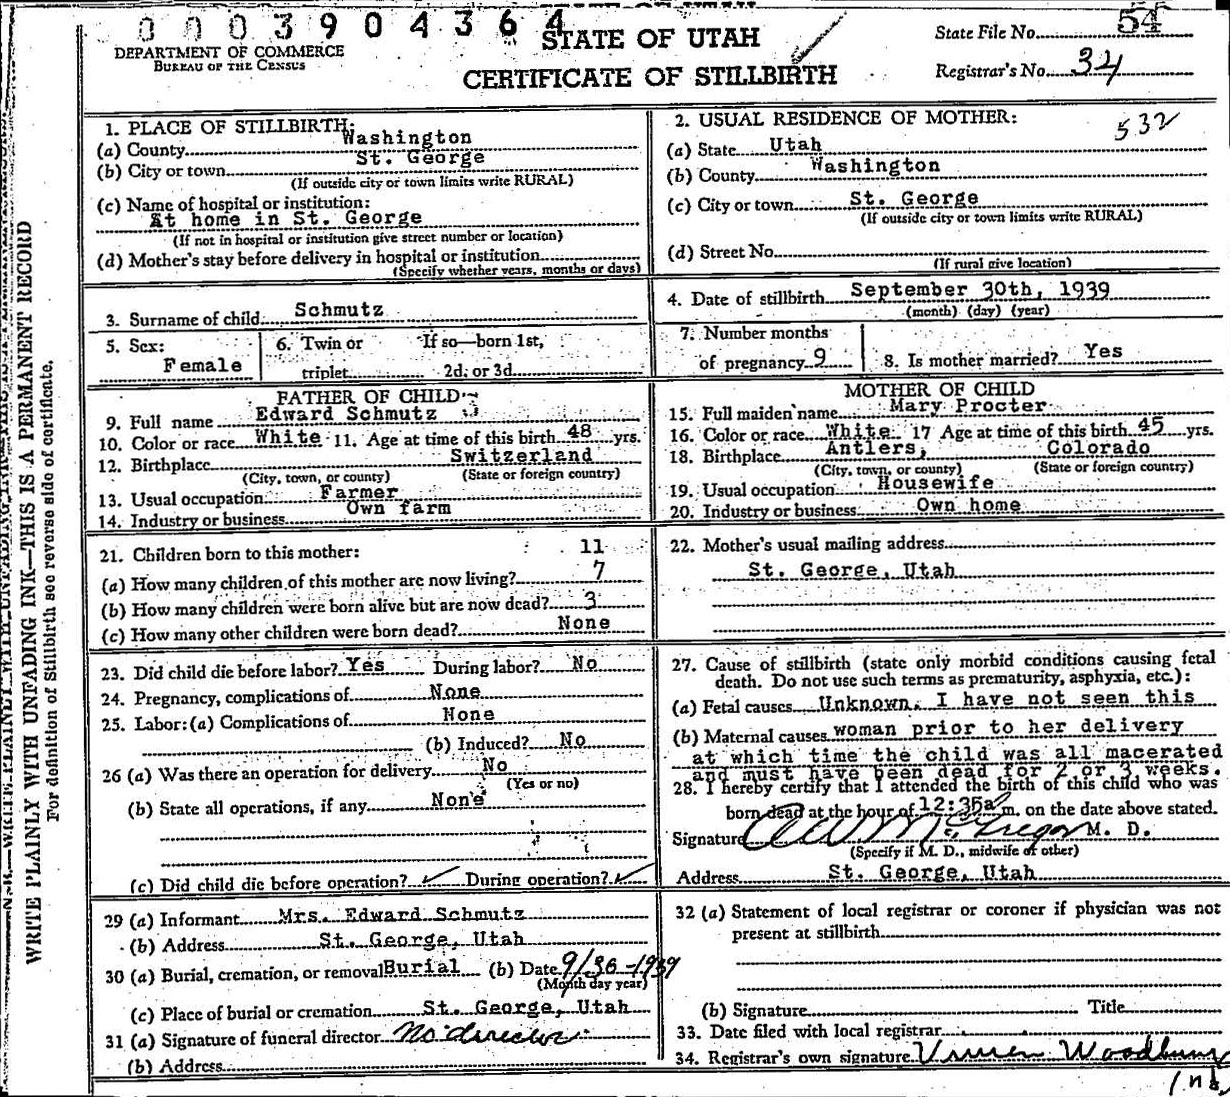 0003904364
STATE OF UTAH
DEPARTMENT OF COMMERCE
BUREAU OF THE CENSUS
CERTIFICATE OF STILLBIRTH
State File No. 54
Registrar's No. 34
532
1. PLACE OF STILLBIRTH:
(a) County Washington
(b) City or town St. George
(If outside city or town limits write RURAL)
(c) Name of hospital or institution:
At home in St. George
(If not in hospital or institution give street number or location)
(d) Mother's stay before delivery in hospital or institution
(Specify whether years, months or days)
2. USUAL RESIDENCE OF MOTHER:
(a) State Utah
(b) County Washington
(c) City or town St. George
(If outside city or town limits write RURAL)
(d) Street No.
(If rural give location)
3. Surname of child Schmutz
4. Date of stillbirth September 30th, 1939
(month) (day) (year)
5. Sex: Female
6. Twin or triplet If so—born 1st, 2d, or 3d
7. Number months of pregnancy 9
8. Is mother married? Yes
FATHER OF CHILD
9. Full name Edward Schmutz
10. Color or race White 11. Age at time of this birth 48 yrs.
12. Birthplace Switzerland
(City, town, or county) (State or foreign country)
13. Usual occupation Farmer
14. Industry or business Own farm
MOTHER OF CHILD
15. Full maiden name Mary Procter
16. Color or race White 17 Age at time of this birth 45 yrs.
18. Birthplace Antlers, Colorado
(City, town, or county) (State or foreign country)
19. Usual occupation Housewife
20. Industry or business Own home
21. Children born to this mother: 11
(a) How many children of this mother are now living? 7
(b) How many children were born alive but are now dead? 3
(c) How many other children were born dead? None
22. Mother's usual mailing address
St. George, Utah
23. Did child die before labor? Yes During labor? No
24. Pregnancy, complications of None
25. Labor: (a) Complications of None
(b) Induced? No
26 (a) Was there an operation for delivery No
(Yes or no)
(b) State all operations, if any None
(c) Did child die before operation? ✓ During operation? ✓
27. Cause of stillbirth (state only morbid conditions causing fetal
death. Do not use such terms as prematurity, asphyxia, etc.):
(a) Fetal causes Unknown. I have not seen this
(b) Maternal causes woman prior to her delivery
at which time the child was all macerated
and must have been dead for 2 or 3 weeks.
28. I hereby certify that I attended the birth of this child who was
born dead at the hour of 12:35a m. on the date above stated.
Signature McGregor M. D.
(Specify if M. D., midwife or other)
Address St. George, Utah
29 (a) Informant Mrs. Edward Schmutz
(b) Address St. George, Utah
30 (a) Burial, cremation, or removal Burial (b) Date 9/30-1939
(Month day year)
(c) Place of burial or cremation St. George, Utah
31 (a) Signature of funeral director No director
(b) Address
32 (a) Statement of local registrar or coroner if physician was not
present at stillbirth
(b) Signature Title
33. Date filed with local registrar
34. Registrar's own signature Woodbury
WRITE PLAINLY WITH UNFADING INK—THIS IS A PERMANENT RECORD
For definition of Stillbirth see reverse side of certificate.